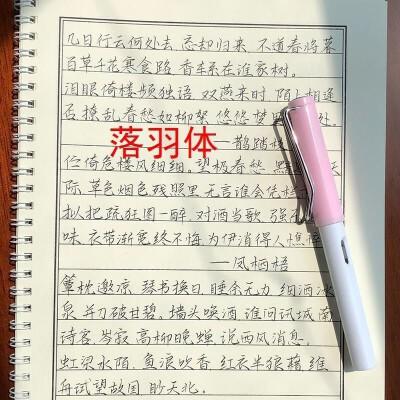 几日行云何处去.忘却归来.不道春将暮
百草千花寒食路 香车系在谁家树.
泪眼倚楼频独语 双燕来时 陌上相逢
否 撩乱春愁如柳絮 悠悠梦 处.
落羽体
——鹊踏枝
伫倚危楼风细细.望极春愁 黯 天
际.草色烟色残照里.无言谁会凭栏
拟把疏狂图一醉.对酒当歌 强
味.衣带渐宽终不悔.为伊消得人憔
——凤栖梧
簟枕邀凉.琴书换日.睡余无力.细洒冰
泉.并刀破甘碧.墙头唤酒.谁问讯城南
诗客.岑寂.高柳晚蝉.说西风消息.
虹梁水陌.鱼浪吹香.红衣半狼藉.维
舟试望故国.眇天北.